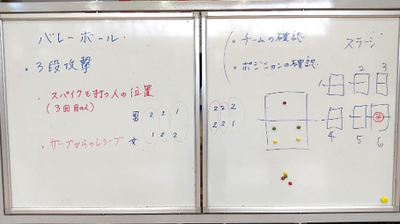 バレーボール
・3段攻撃
・スパイクを打つ人の位置
(3回目の人)
男 2 2 1
女 1 2 2
・サーブからのレシーブ
・チームの確認
・ポジションの確認
2 2 2
2 2 1
ステージ
1 2 3
4 5 6